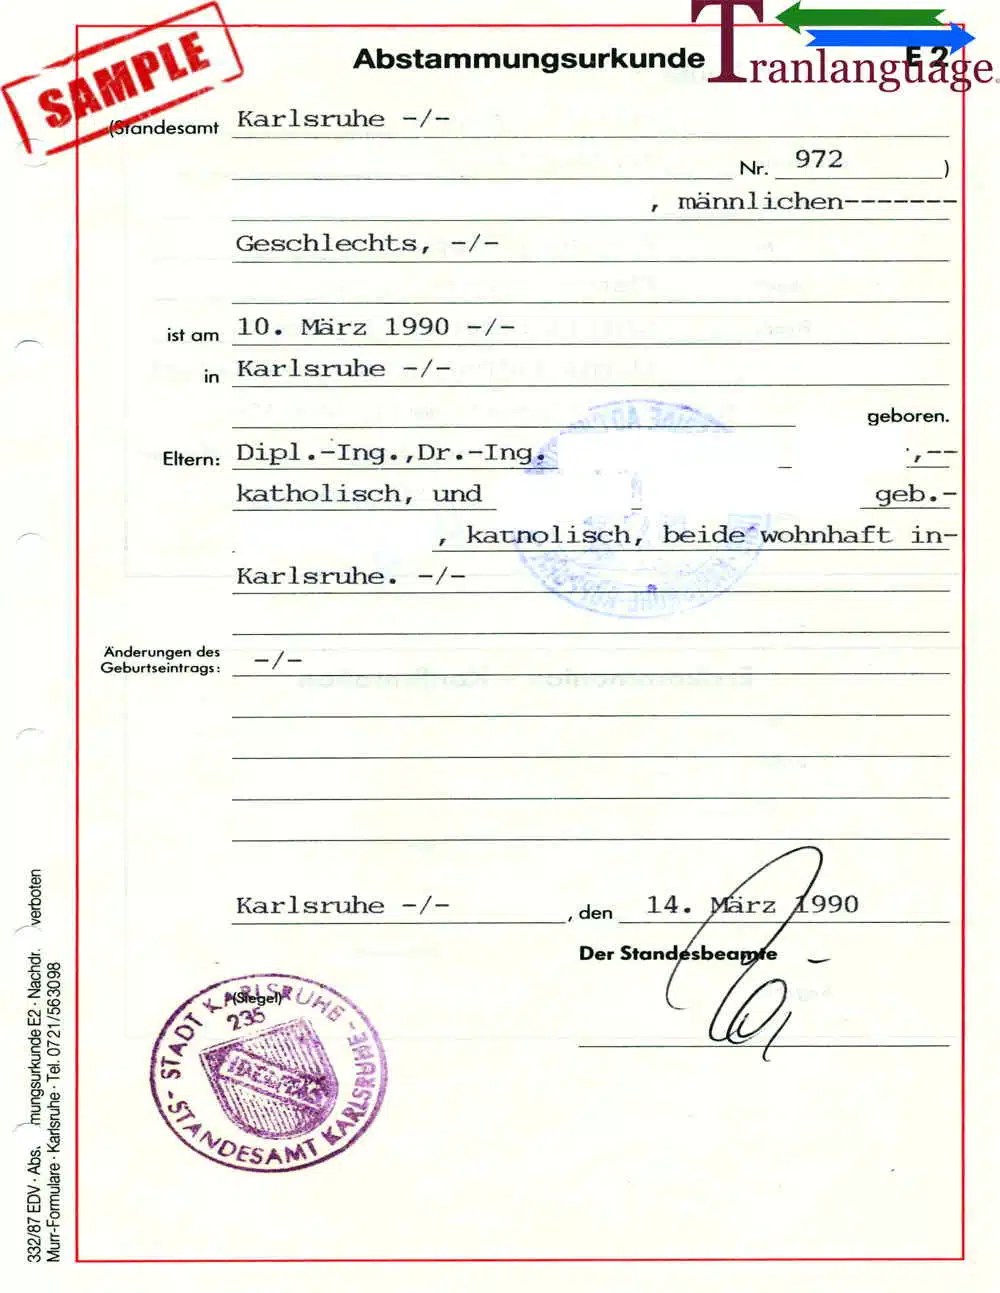 SAMPLE
Tranlanguage
Abstammungsurkunde E 2
(Standesamt Karlsruhe -/-
Nr. 972 )
, männlichen-------
Geschlechts, -/-
ist am 10. März 1990 -/-
in Karlsruhe -/-
geboren.
Eltern: Dipl.-Ing.,Dr.-Ing. ,--
katholisch, und geb.-
, katholisch, beide wohnhaft in-
Karlsruhe. -/-
Änderungen des
Geburtseintrags: -/-
Karlsruhe -/- , den 14. März 1990
Der Standesbeamte
(Siegel)
235
- STADT KARLSRUHE -
STANDESAMT KARLSRUHE
FIDELITAS
332/87 EDV · Abs. mungsurkunde E2 · Nachdr. verboten
Murr-Formulare · Karlsruhe · Tel. 07 21/563098